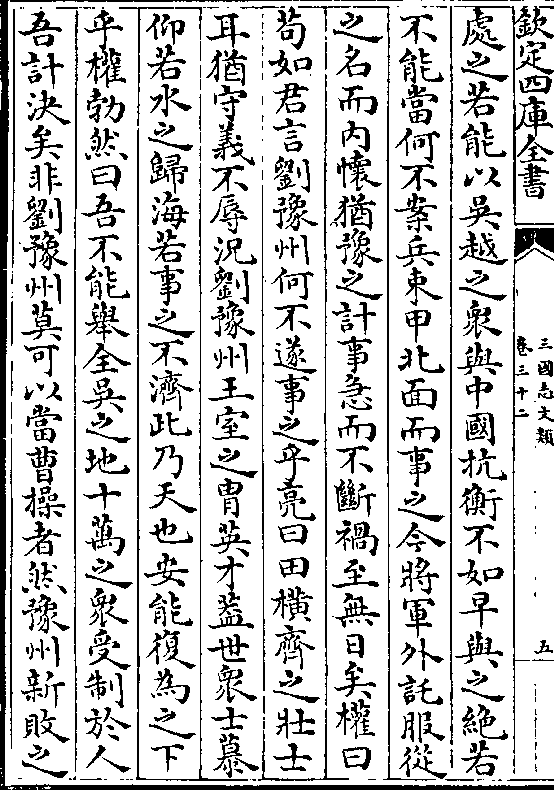 欽定四庫全書
三國志文類
卷三十二
五
處之若能以吳越之衆與中國抗衡不如早與之絶若
不能當何不案兵束甲北面而事之今將軍外託服從
之名而内懷猶豫之計事急而不斷禍至無日矣權曰
苟如君言劉豫州何不遂事之乎亮曰田橫齊之壯士
耳猶守義不辱況劉豫州王室之胄英才葢世衆士慕
仰若水之歸海若事之不濟此乃天也安能復為之下
乎權勃然曰吾不能舉全吳之地十萬之衆受制於人
吾計決矣非劉豫州莫可以當曹操者然豫州新敗之